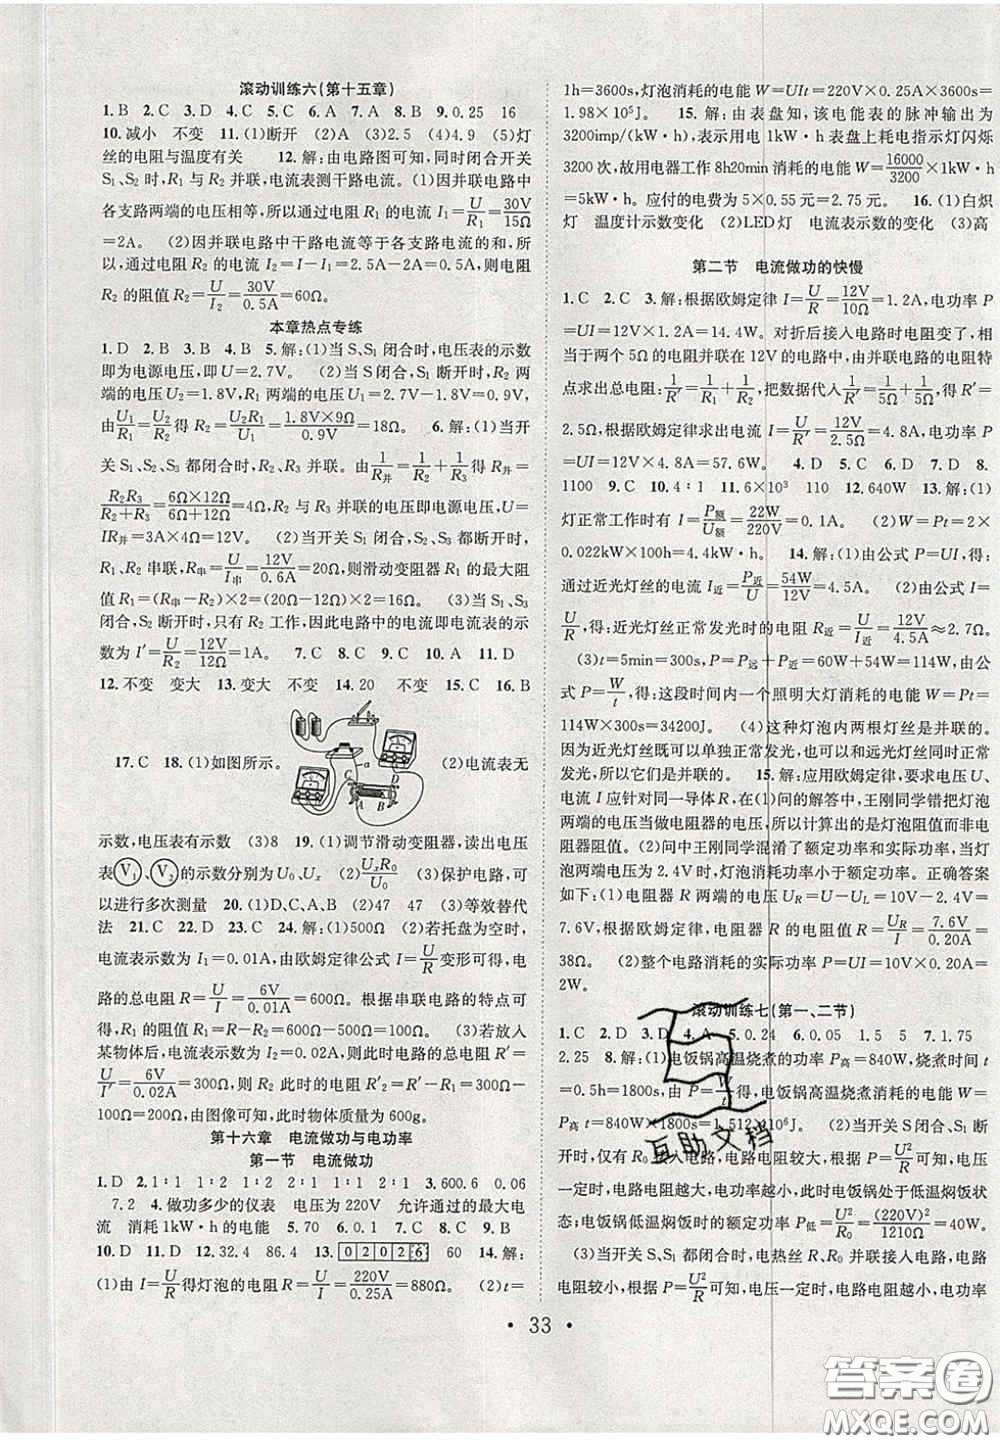 滚动训练六(第十五章)
1.B 2.C 3.D 4.C 5.C 6.A 7.A 8.C 9.0.25 16
10.减小 不变 11.(1)断开 (2)A (3)2.5 (4)4.9 (5)灯
丝的电阻与温度有关 12.解:由电路图可知,同时闭合开关
S₁、S₂时,R₁与R₂并联,电流表测干路电流。(1)因并联电路中
各支路两端的电压相等,所以通过电阻R₁的电流I₁=U/R₁=30V/15Ω
=2A。 (2)因并联电路中干路电流等于各支路电流的和,所
以,通过电阻R₂的电流I₂=I-I₁=2.5A-2A=0.5A,则电阻
R₂的阻值R₂=U/I₂=30V/0.5A=60Ω。
本章热点专练
1.D 2.B 3.B 4.B 5.解:(1)当S、S₁闭合时,电压表的示数
即为电源电压,即U=2.7V。 (2)当S闭合,S₁断开时,R₂两
端的电压U₂=1.8V,R₁两端的电压U₁=2.7V-1.8V=0.9V,
由U₁/R₁=U₂/R₂得R₂=U₂R₁/U₁=1.8V×9Ω/0.9V=18Ω。 6.解:(1)当开
关S₁、S₂、S₃都闭合时,R₂、R₃并联。由1/R并=1/R₂+1/R₃得R并=
R₂R₃/(R₂+R₃)=6Ω×12Ω/(6Ω+12Ω)=4Ω,R₂与R₃并联的电压即电源电压,U=
IR并=3A×4Ω=12V。 (2)当开关S₁、S₂、S₃都断开时,
R₁、R₂串联,R串=U/I串=12V/0.6A=20Ω,则滑动变阻器R₁的最大阻
值R₁=(R串-R₂)×2=(20Ω-12Ω)×2=16Ω。 (3)当S₁、S₃
闭合,S₂断开时,只有R₂工作,因此电路中的电流即电流表的示
数为I′=U/R₂=12V/12Ω=1A。 7.C 8.C 9.C 10.A 11.D
12.不变 变大 13.变大 不变 14.20 不变 15.C 16.B
17.C 18.(1)如图所示。 (2)电流表无
a
C D
A B
示数,电压表有示数 (3)8 19.(1)调节滑动变阻器,读出电压
表V₁、V₂的示数分别为U₀、Uₓ (2)UₓR₀/U₀ (3)保护电路,可
以进行多次测量 20.(1)D、C、A (2)47 47 (3)等效替代
法 21.C 22.D 23.C 24.解:(1)串联 (2)若托盘为空时,
电流表示数为I₁=0.01A,由欧姆定律公式I=U/R变形可得:
电路的总电阻R=U/I₁=6V/0.01A=600Ω。根据串联电路的特点可
得:R₁的阻值R₁=R-R₂=600Ω-100Ω=500Ω。 (3)若放入
某物体时,电流表示数为I₂=0.02A,此时电路中的总电阻R′=
U/I′=6V/0.02A=300Ω,则此时的电阻R′₂=R′-R₀=300Ω-
100Ω=200Ω,由图像可知,此时物体质量为600g。
第十六章 电流做功与电功率
第一节 电流做功
1.D 2.1∶1 1∶2 1∶2 1∶1 2∶1 2∶1 3.600.6 0.06
7.2 4.做功多少的仪表 电压为220V 允许通过的最大电
流 消耗1kW·h的电能 5.70 6.0.1 7.C 8.C 9.B
10.D 11.D 12.32.4 86.4 13.02026 60 14.解:
(1)由I=U/R得灯泡的电阻R=U/I=220V/0.25A=880Ω。 (2)t=
1h=3600s,灯泡消耗的电能W=UIt=220V×0.25A×3600s=
1.98×10⁵J。 15.解:由表盘知,该电能表的脉冲输出为
3200imp/(kW·h),表示用电1kW·h表盘上耗电指示灯闪烁
3200次,故用电器工作8h20min消耗的电能W=16000/3200×1kW·h
=5kW·h。应付的电费为5×0.55元=2.75元。 16.(1)白炽
灯 温度计示数变化 (2)LED灯 电流表示数的变化 (3)高
第二节 电流做功的快慢
1.C 2.C 3.解:根据欧姆定律I=U/R=12V/10Ω=1.2A,电功率P
=UI=12V×1.2A=14.4W。对折后接入电路时电阻变了,相
当于两个5Ω的电阻并联在12V的电路中,由并联电路的电阻特
点求出总电阻:1/R′=1/R₁+1/R₂,把数据代入1/R′=1/5Ω+1/5Ω,得R′=
2.5Ω,根据欧姆定律求出电流I=U/R′=12V/2.5Ω=4.8A,电功率P
=UI=12V×4.8A=57.6W。 4.D 5.C 6.D 7.D 8.
1100 9.C 10.4∶1 11.6×10³ 110 12.640W 13.解:(1)
灯正常工作时有I=P额/U额=22W/220V=0.1A。 (2)W=Pt=2×
0.022kW×100h=4.4kW·h。 14.解:(1)由公式P=UI,得:
通过近光灯丝的电流I近=P近/U=54W/12V=4.5A。 (2)由公式I=
U/R,得:近光灯丝正常发光时的电阻R近=U/I近=12V/4.5A≈2.7Ω。
(3)t=5min=300s,P=P远+P近=60W+54W=114W,由公
式P=W/t,得:这段时间内一个照明大灯消耗的电能W=Pt=
114W×300s=34200J。 (4)这种灯泡内两根灯丝是并联的。
因为近光灯丝既可以单独正常发光,也可以和远光灯丝同时正常
发光,所以它们是并联的。 15.解:应用欧姆定律,要求电压U、
电流I应针对同一导体R。(1)问的解答中,王刚同学错把灯泡
两端的电压当做电阻器的电压,所以计算出的是灯泡阻值而非电
阻器阻值。(2)问中王刚同学混淆了额定功率和实际功率,当灯
泡两端电压为2.4V时,灯泡消耗功率小于额定功率。正确答案
如下:(1)电阻器R两端的电压UR=U-UL=10V-2.4V=
7.6V,根据欧姆定律,电阻器R的电阻值R=UR/I=7.6V/0.20A=
38Ω。 (2)整个电路消耗的实际功率P=UI=10V×0.20A=
2W。
滚动训练七(第一、二节)
1.C 2.D 3.D 4.A 5.0.24 6.0.05 1.5 5 7.1.75
2.25 8.解:(1)电饭锅高温烧煮的功率P高=840W,烧煮时间t
=0.5h=1800s,由P=W/t得,电饭锅高温烧煮消耗的电能W=
P高t=840W×1800s=1.512×10⁶J。 (2)当开关S闭合、S₁断
开时,仅有R₀接入电路,电路电阻较大,根据公式P=U²/R可知,电
压一定时,电路电阻越大,电功率越小,所以此时电饭锅处于低温焖饭状
态;电饭锅低温焖饭时的额定功率P低=U²/R₀=(220V)²/1210Ω=40W。
(3)当开关S、S₁都闭合时,电热丝R、R₀并联接入电路,电路电
阻较小,根据公式P=U²/R可知,电压一定时,电路电阻越小,电功率
·33·
互助文档
答案圈
MXQE.COM